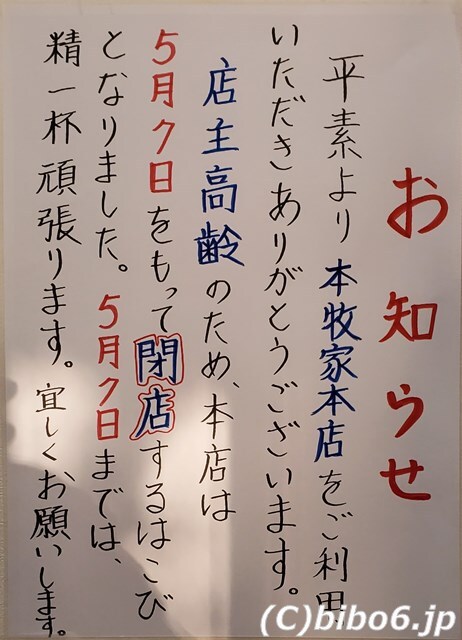 お知らせ
平素より本牧家本店をご利用
いただきありがとうございます。
店主高齢のため、本店は
5月7日をもって閉店するはこび
となりました。5月7日までは、
精一杯頑張ります。宜しくお願いします。
(C)bibo6.jp